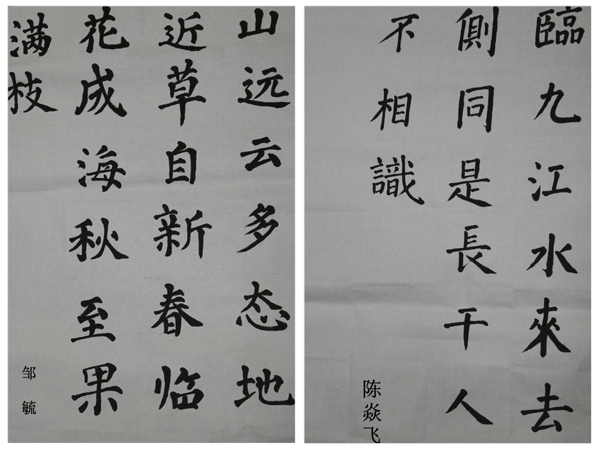 山远云多态地
近草自新春临
花成海秋至果
满枝
邹毓
臨九江水來去
側同是長干人
不相識
陈焱飞